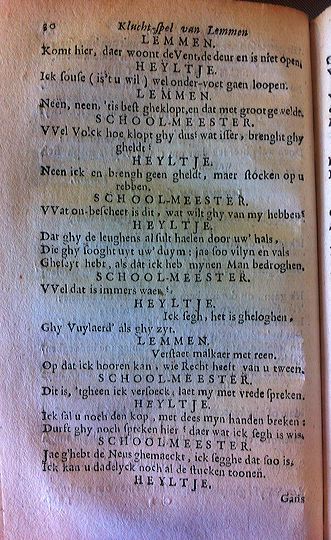 30 Klucht-spel van Lemmen
LEMMEN.
Komt hier, daer woont de Vent, de deur en is niet open,
HEYLTJE.
Ick souse (is't u wil) wel onder-voet gaen loopen.
LEMMEN.
Neen, neen, 'tis best gheklopt, en dat met groot geweldt.
SCHOOL-MEESTER.
VVel Volck hoe klopt ghy dus? wat isser, brenght ghy
gheldt?
HEYLTJE.
Neen ick en brengh geen gheldt, maer stocken op u
rebben.
SCHOOL-MEESTER.
VVat on-bescheet is dit, wat wilt ghy van my hebben?
HEYLTJE.
Dat ghy de leughens al sult haelen door uw' hals,
Die ghy sooght uyt uw' duym: jae soo vilyn en vals
Gheseyt hebt, als dat ick heb mynen Man bedroghen.
SCHOOL-MEESTER.
VVel dat is immers waer.
HEYLTJE.
Ick segh, het is gheloghen,
Ghy Vuylaerd' als ghy zyt.
LEMMEN.
Verstaet malkaer met reen.
Op dat ick hooren kan, wie Recht heeft van u tween.
SCHOOL-MEESTER.
Dit is, 'tgheen ick versoeck, laet my met vrede spreken.
HEYLTJE.
Ick sal u noch den kop, met dees myn handen breken:
Durft ghy noch spreken hier? daer wat ick segh is wis.
SCHOOL-MEESTER.
Jae g'hebt de Neus ghemaeckt, ick segghe dat soo is,
Ick kan u dadelyck noch al de stucken toonen.
HEYLTJE.
Gans